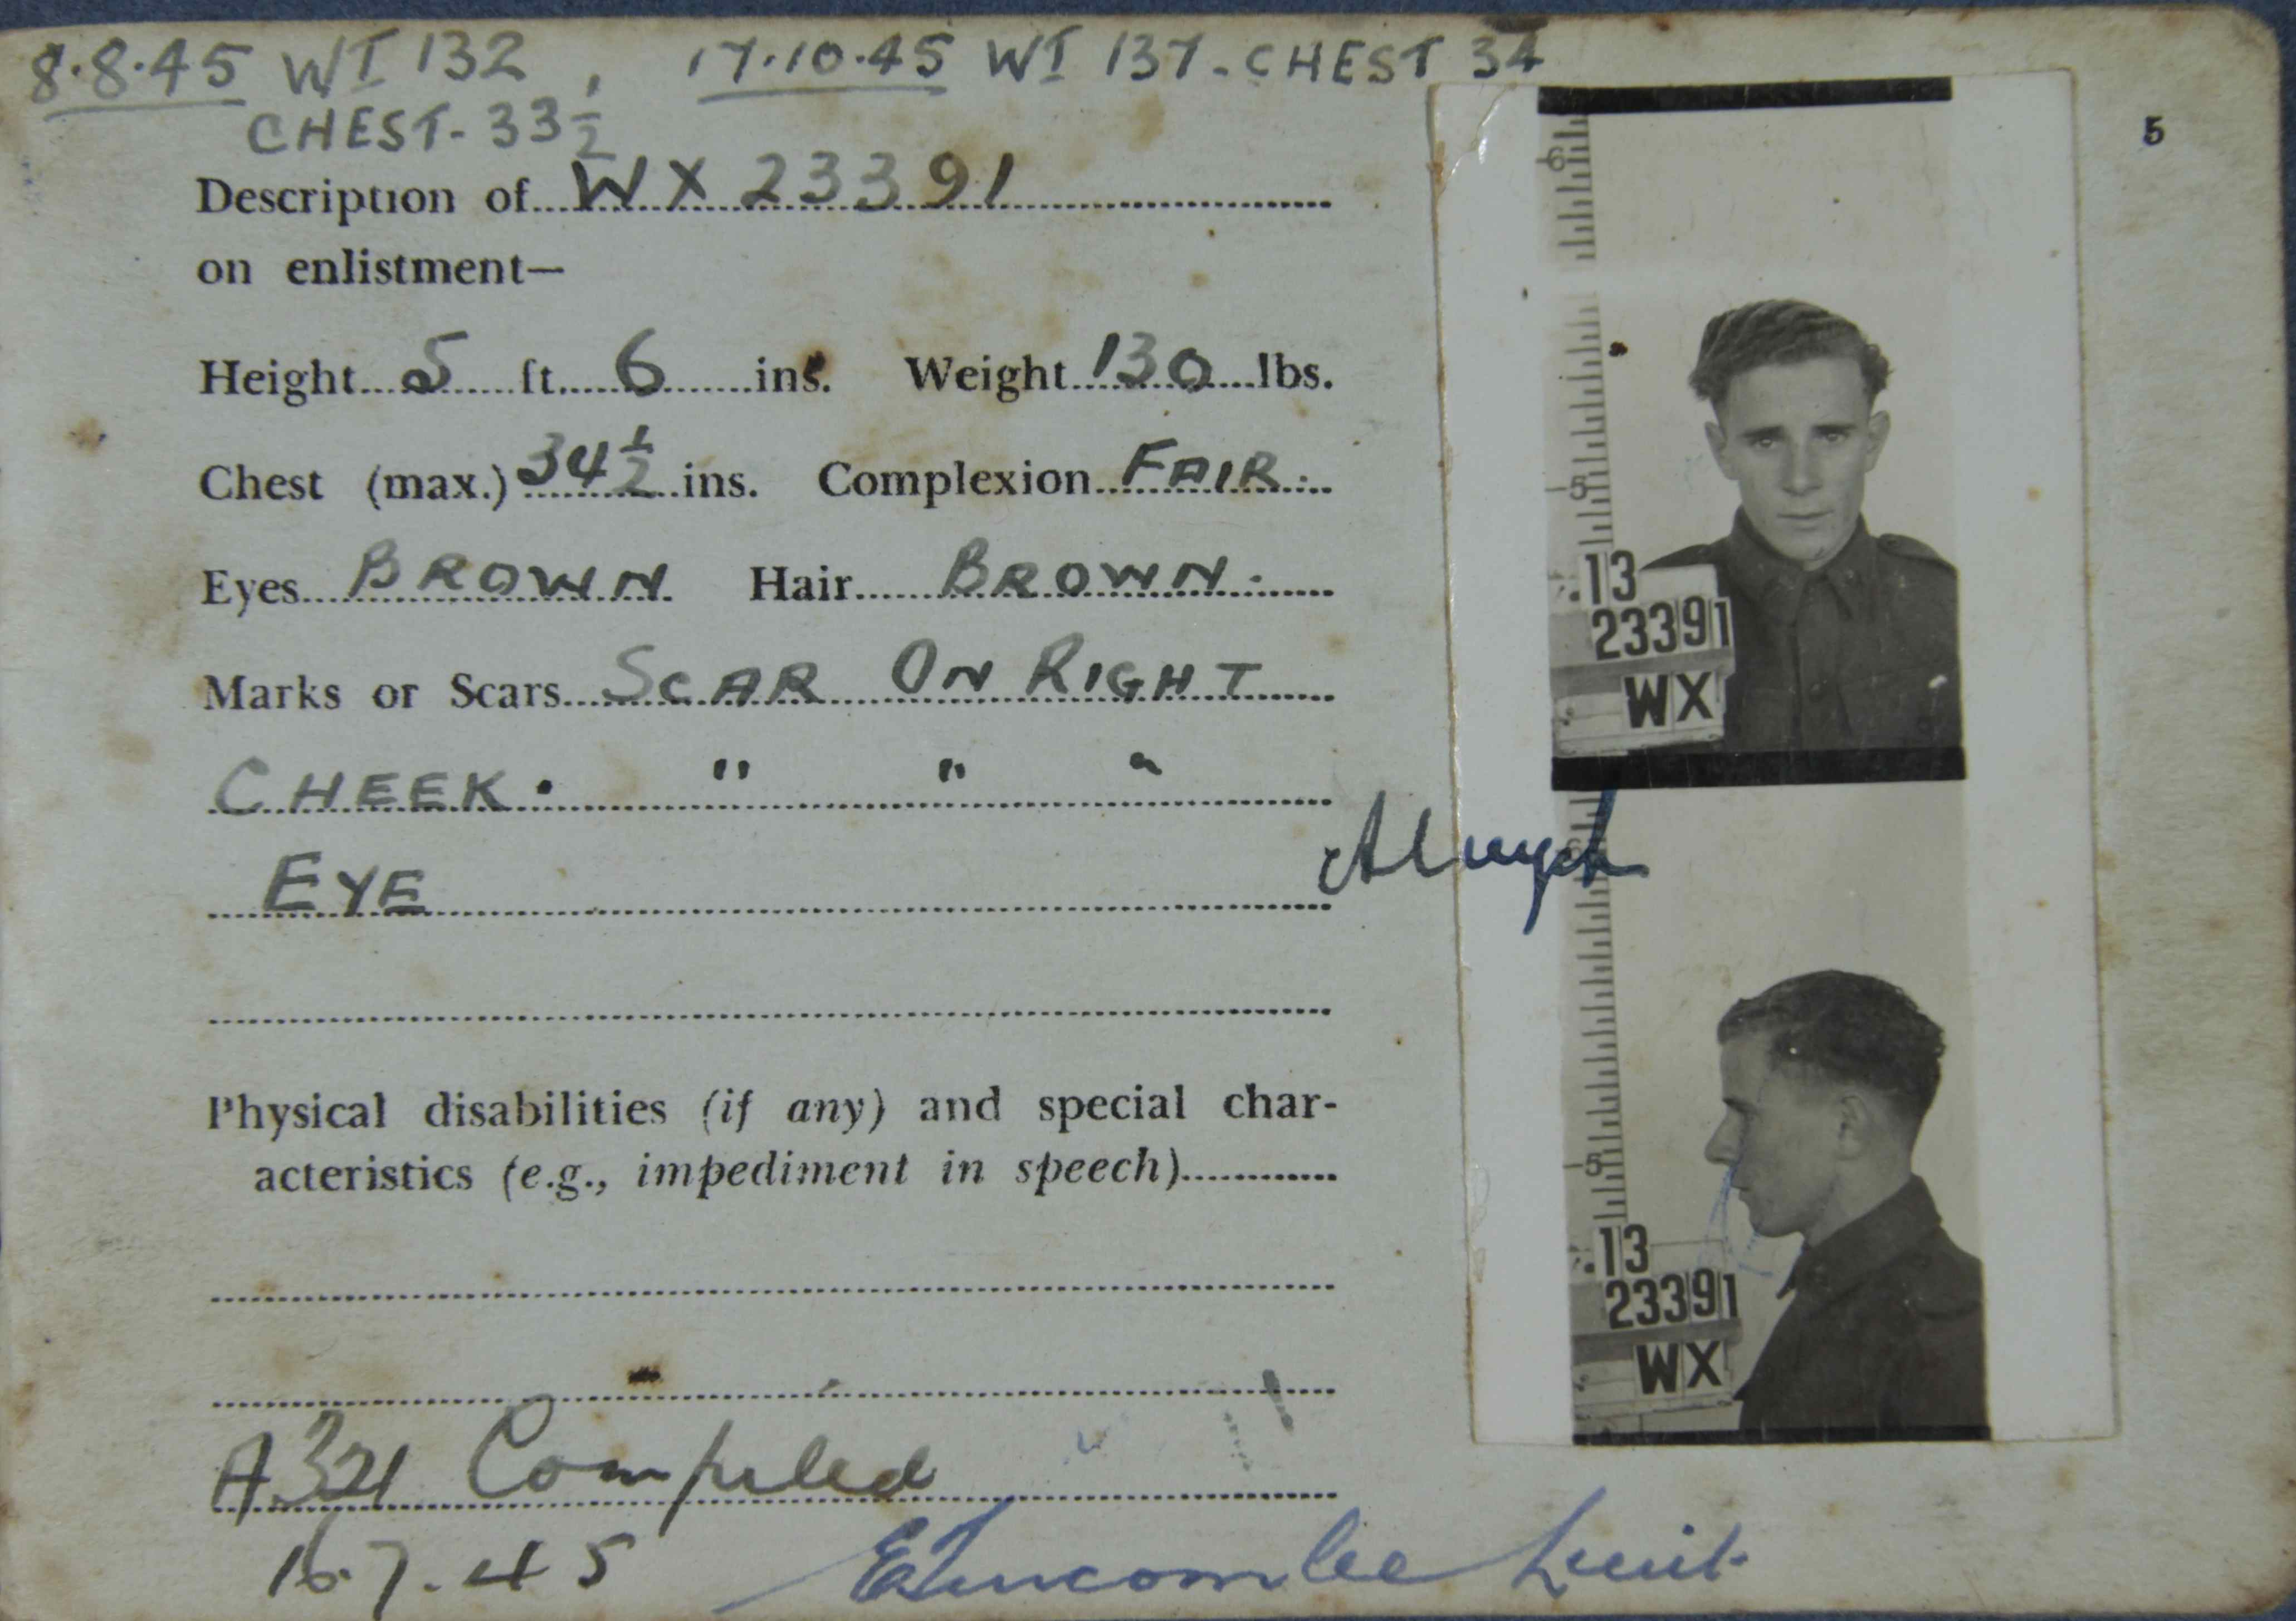 8.8.45 WT 132, 17.10.45 WT 137-CHEST 34
CHEST-33½
5
Description of WX 23391
on enlistment—
Height 5 ft. 6 ins. Weight 130 lbs.
Chest (max.) 34½ ins. Complexion FAIR.
Eyes BROWN Hair BROWN.
Marks or Scars SCAR ON RIGHT
CHEEK. " " "
EYE
Physical disabilities (if any) and special char-
acteristics (e.g., impediment in speech)
A321 Compiled
16.7.45
Lieut
6
5
13
23391
WX
5
13
23391
WX